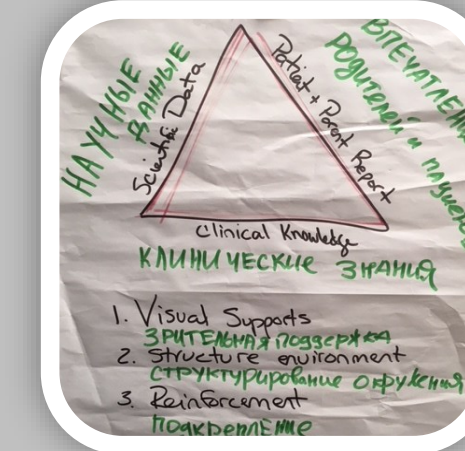 НАУЧНЫЕ
ДАННЫЕ
Scientific Data
Patient + Parent Report
РОДИТЕЛЕЙ и
Clinical Knowledge
КЛИНИЧЕСКИЕ ЗНАНИЯ
1. Visual Supports
ЗРИТЕЛЬНАЯ ПОДДЕРЖКА
2. Structure environment
СТРУКТУРИРОВАНИЕ ОКРУЖЕНИЯ
3. Reinforcement
ПОДКРЕПЛЕНИЕ